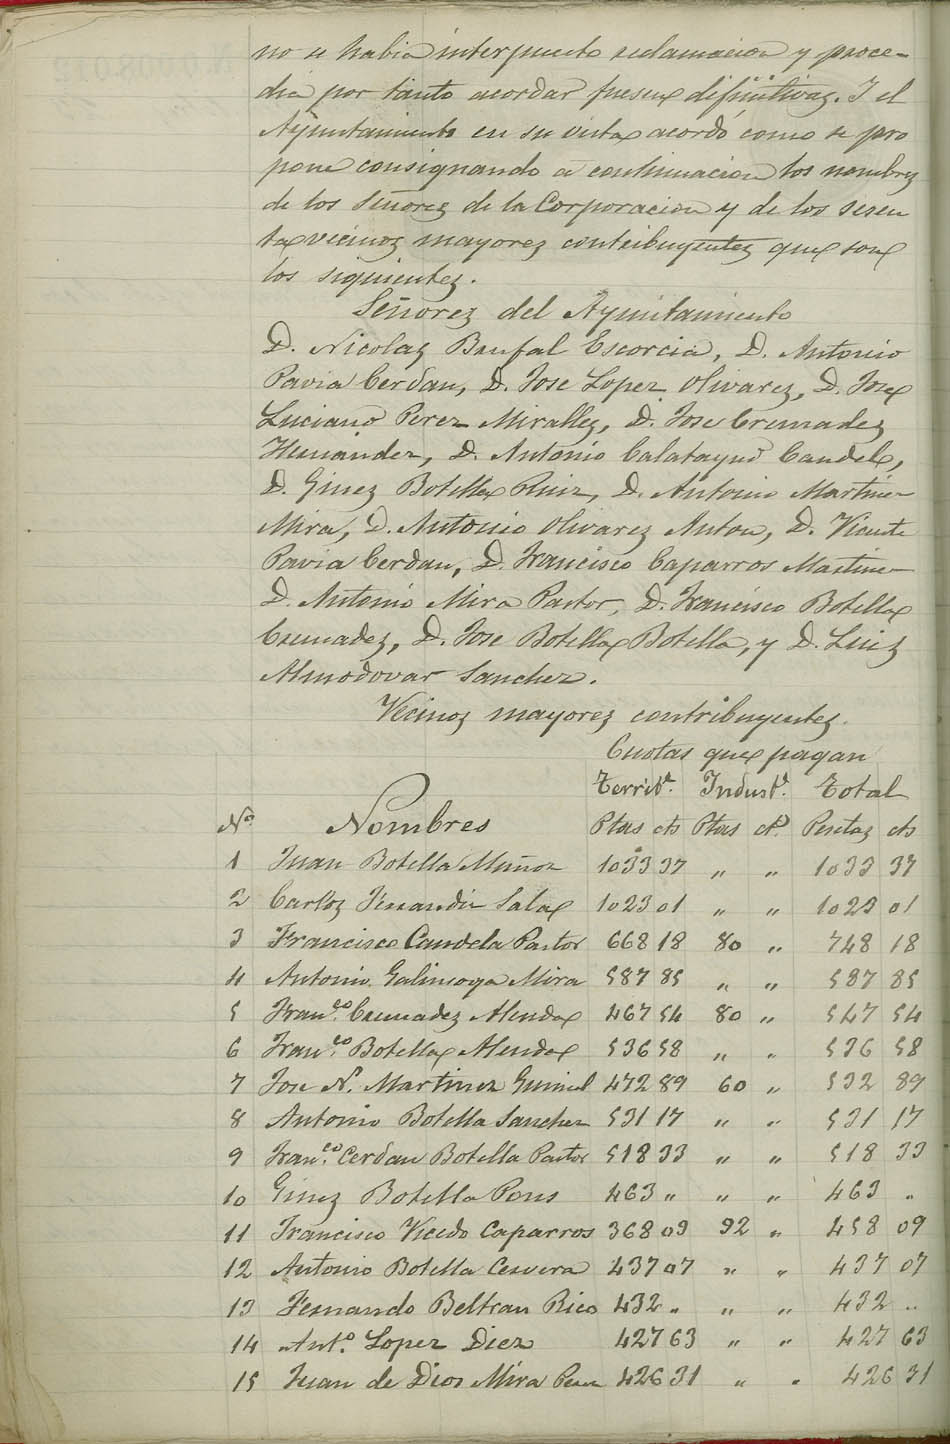 no se habia interpuesto reclamacion y proce-
dia por tanto acordar fuesen difinitivas. I el
Ayuntamiento en su vista acordó como se pro
pone consignando a continuacion los nombres
de los Señores de la Corporacion y de los sesen
ta vecinos mayores contribuyentes que son
los siguientes.
Señores del Ayuntamiento
D. Nicolas Bufal Escorcia, D. Antonio
Pavia Cerdan, D. Jose Lopez Olivares, D. Jose
Luciano Perez Miralles, D. Jose Cremades
Hernandez, D. Antonio Calatayud Candela,
D. Gines Botella Ruiz, D. Antonio Martinez
Mira, D. Antonio Olivares Anton, D. Vicente
Pavia Cerdan, D. Francisco Caparros Martinez
D. Antonio Mira Pastor, D. Francisco Botella
Cremades, D. Jose Botella Botella, y D. Luis
Almodovar Sanchez.
Vecinos mayores contribuyentes.
Cuotas que pagan
Territˡ. Industˡ. Total
Nº Nombres Ptas cts Ptas ct. Pesetas cts
1 Juan Botella Muñoz 1033 37 " " 1033 37
2 Carlos Sala 1023 01 " " 1023 01
3 Francisco Candela Pastor 668 18 80 " 748 18
4 Antonio Galinsoga Mira 587 85 " " 587 85
5 Franᶜᵒ. Cremades Alenda 467 54 80 " 547 54
6 Franᶜᵒ. Botella Alenda 536 58 " " 536 58
7 Jose N. Martinez 472 89 60 " 532 89
8 Antonio Botella Sanchez 531 17 " " 531 17
9 Franᶜᵒ. Cerdan Botella Pastor 518 33 " " 518 33
10 Gines Botella Pons 463 " " " 463 "
11 Francisco Vicedo Caparros 368 09 92 " 458 09
12 Antonio Botella Cervera 437 07 " " 437 07
13 Fernando Beltran Rico 432 " " " 432 "
14 Antº. Lopez Diez 427 63 " " 427 63
15 Juan de Dios Mira Perez 426 31 " " 426 31